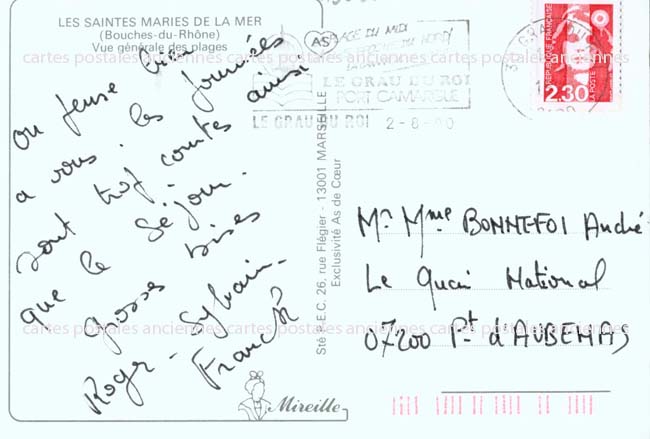 LES SAINTES MARIES DE LA MER
(Bouches-du-Rhône)
Vue générale des plages
On pense bien
a vous. les journées
sont trop courtes ainsi
que le séjour.
grosses bises
Roger - Sylvain -
Franck
Mireille
AS
Sté P.E.C. 26, rue Flégier - 13001 MARSEILLE
Exclusivité As de Cœur
PLAGE DU MIDI
LE GRAU DU ROI
PORT CAMARGUE
LE GRAU DU ROI 2-8-90
RÉPUBLIQUE FRANÇAISE
2.30
LA POSTE
Mr Mme BONNEFOI André
Le Quai National
07200 Pt d'AUBENAS
cartes postales anciennes cartes postales anciennes cartes postales anciennes
cartes postales anciennes cartes postales anciennes cartes postales anciennes